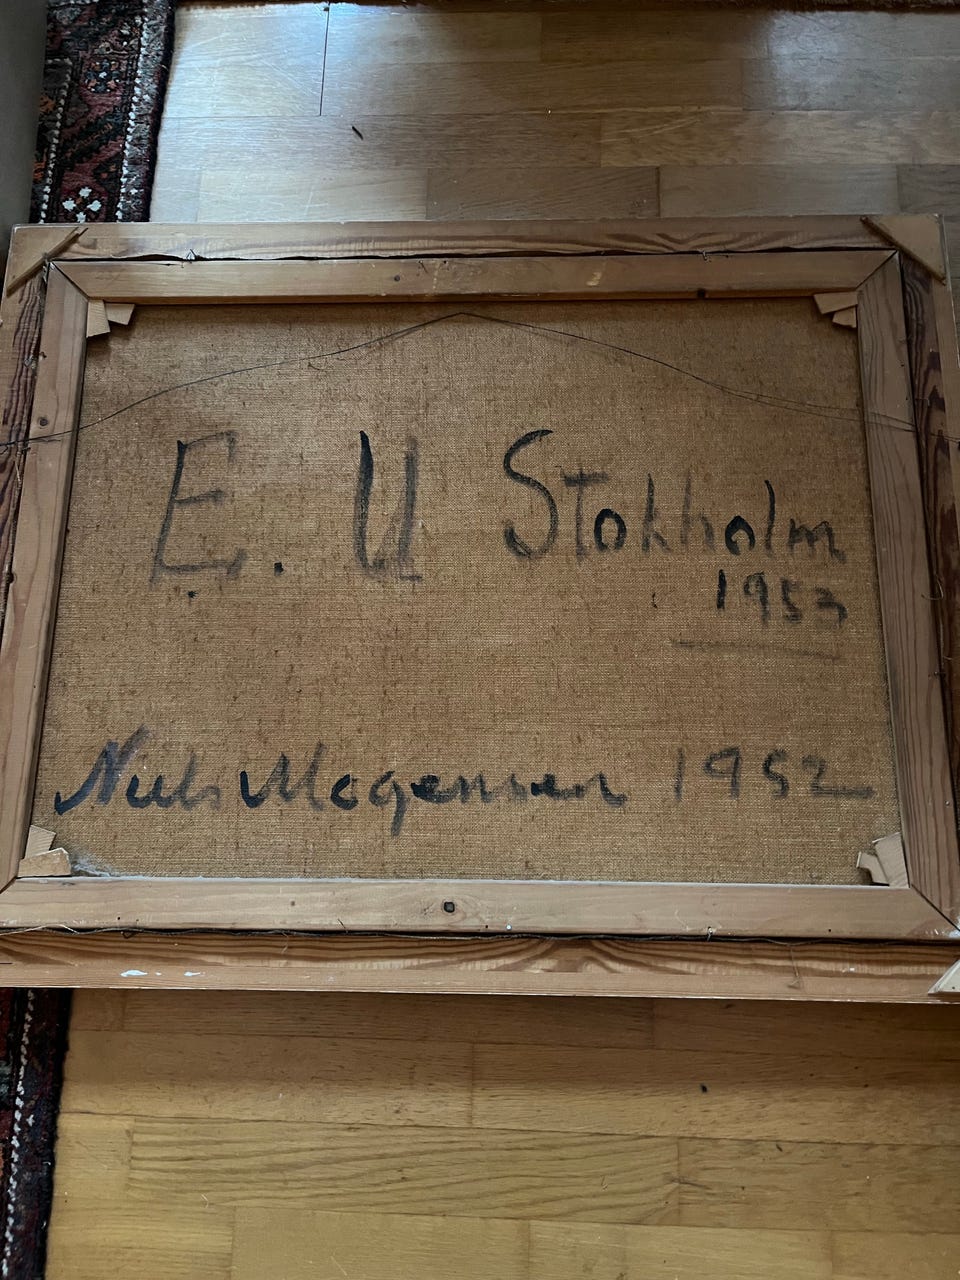 E. U Stokholm
1953
Niels Mogensen 1952